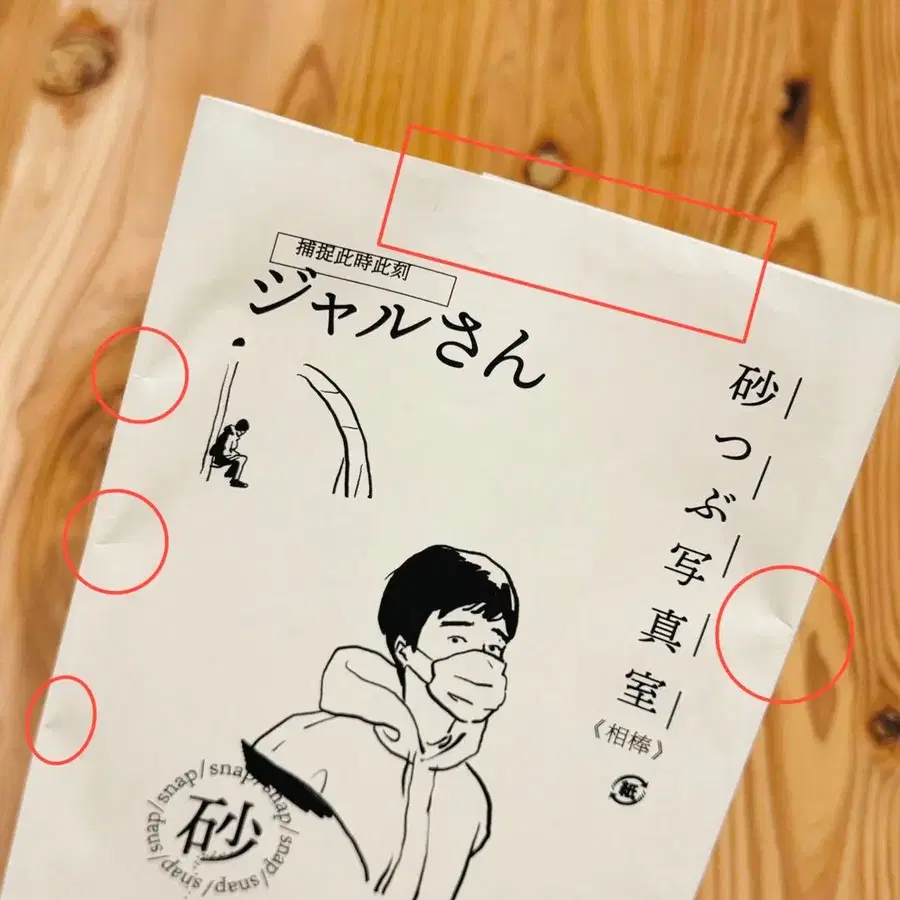 捕捉此時此刻
ジャルさん
砂つぶ写真室
《相棒》
紙
snap/snap/snap/snap/snap/snap/snap/
砂